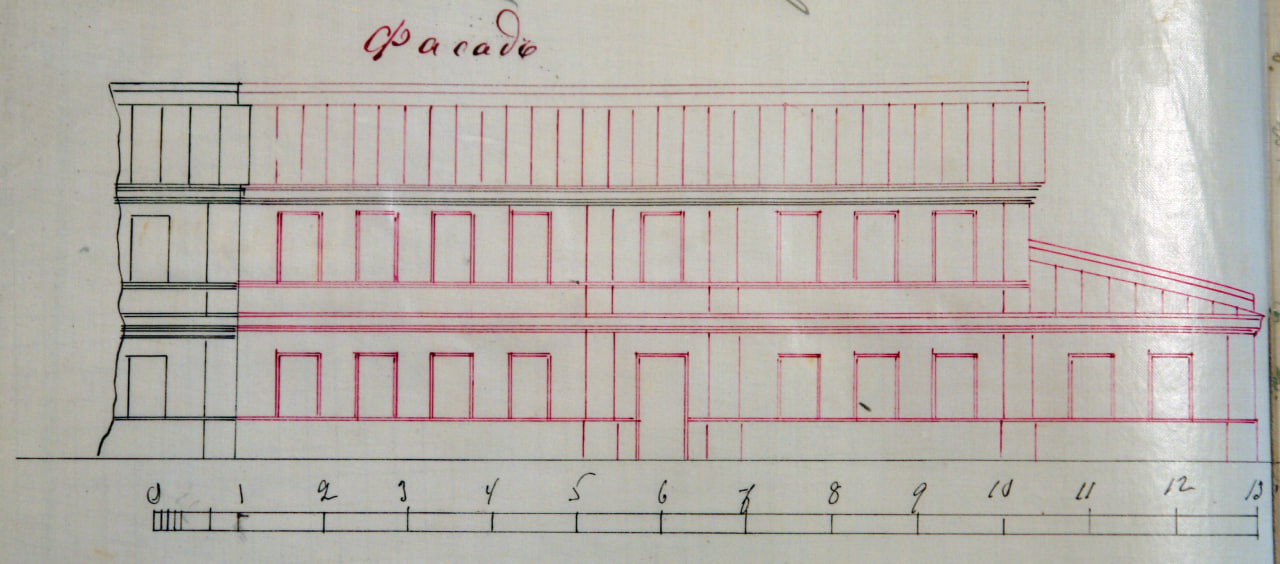 Фасадъ
0 1 2 3 4 5 6 7 8 9 10 11 12 13